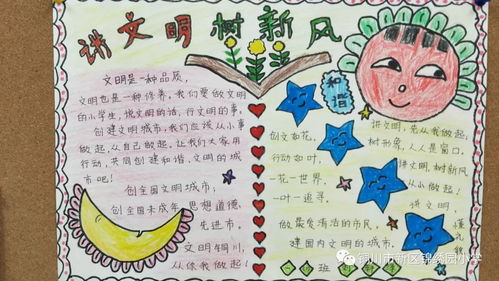 讲文明树新风
文明是一种品质,
文明也是一种修养,我们要做文明
的小学生,说文明的话,行文明的事,
创建文明城市,我们应该从小事
做起,从自己做起,让我们大家用
行动,共同创建和谐,文明的城
市吧!
创全国文明城市,
创全国未成年思想道德
先进市。
文明铜川,
从你我做起!
创文如花,
行动如叶,
一花一世界,
一叶一追寻。
做最爱清洁的市民,
建国内文明的城市。
和谐
讲文明,要从我做起;
树形象,人人是窗口,
讲文明,树新风
从小做起!
讲文明,
铜川市新区锦绣园小学